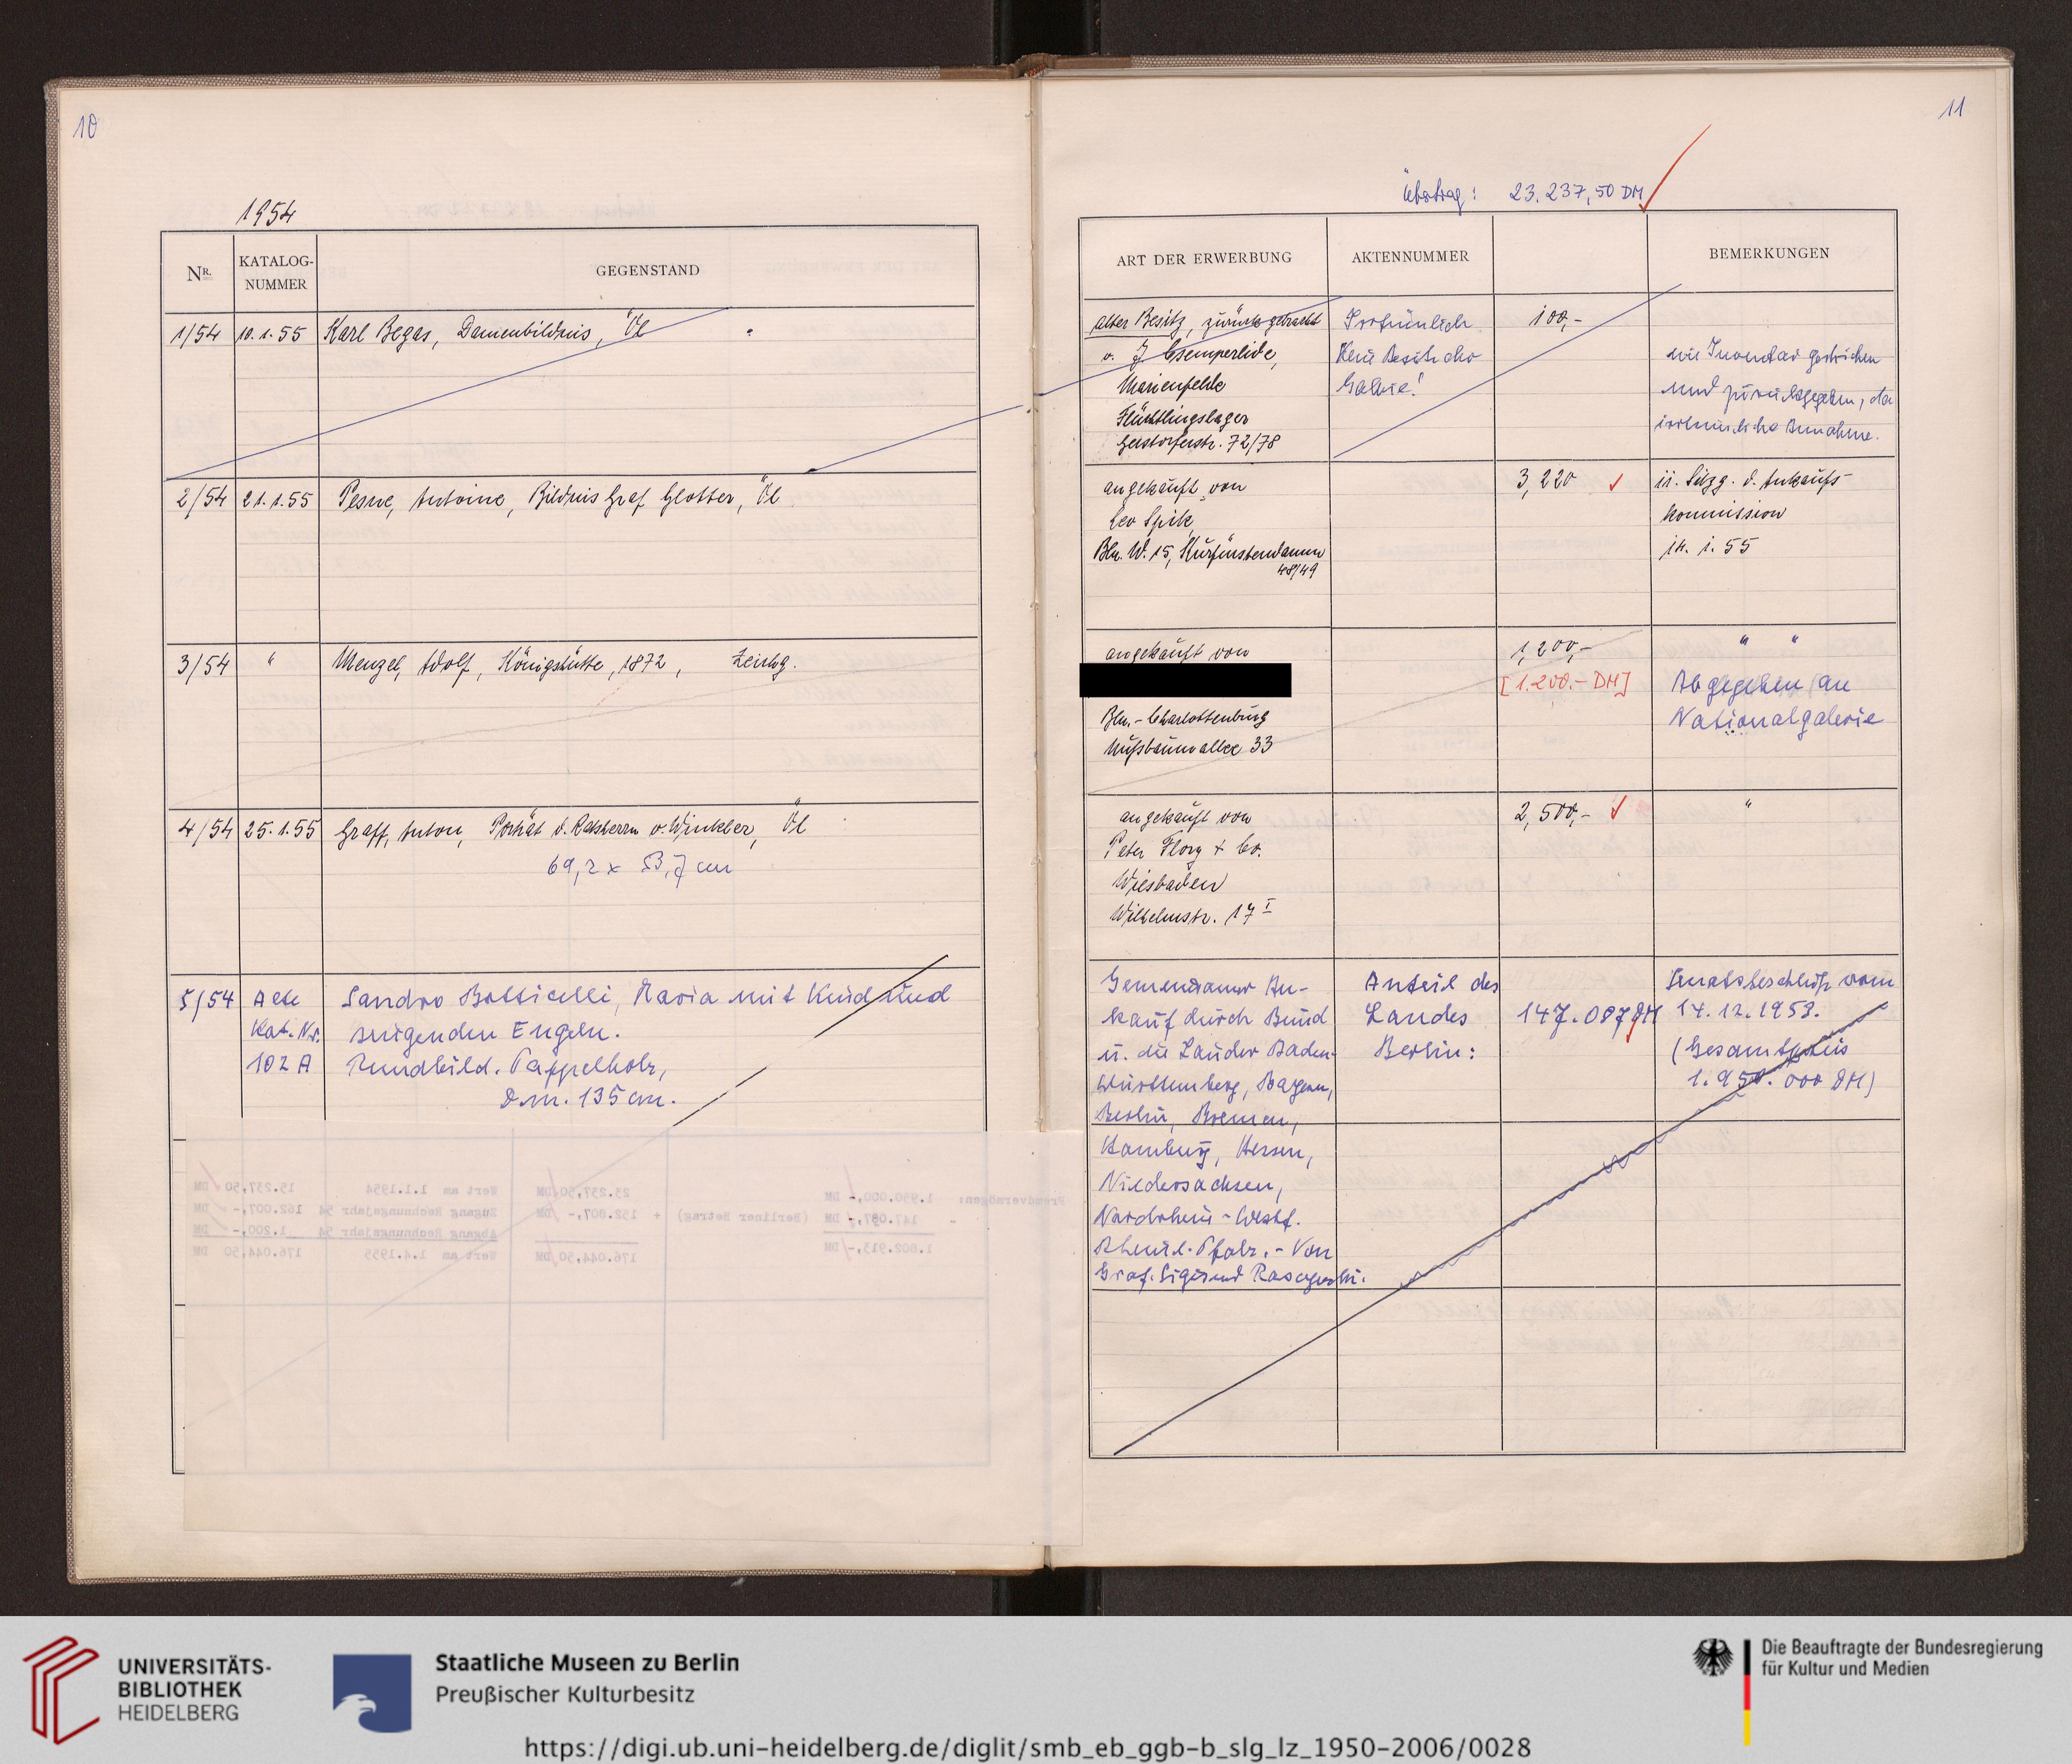 10
1954
Nr.
KATALOG-
NUMMER
GEGENSTAND
1/54 10.1.55 Karl Begas, Damenbildnis, Öl
2/54 21.1.55 Pesne, Antoine, Bildnis Graf Glotter, Öl
3/54 " Menzel, Adolf, Königshütte, 1872, Zeichg.
4/54 25.1.55 Graff, Anton, Porträt d. Ratsherrn v. Winkler, Öl
69,2 x 53,7 cm
5/54 Alte Sandro Botticelli, Maria mit Kind und
Kat. Nr. singenden Engeln.
102 A Rundbild. Pappelholz,
Dm. 135 cm.
15.237,50 DM Wert am 1.1.1954
162.007,- DM Zugang Rechnungsjahr 54
1.200,- DM Abgang Rechnungsjahr 54
176.044,50 DM Wert am 1.4.1955
23.237,50 DM
+ 152.807,- DM
176.044,50 DM
Fremdvermögen: 1.950.000,- DM
- 147.087,- DM (Berliner Betrag)
1.802.913,- DM
11
Übertrag: 23.237,50 DM
ART DER ERWERBUNG
AKTENNUMMER
BEMERKUNGEN
alter Besitz, zurückgebracht
v. J.
Marienfelde
Flüchtlingslager
72/78
Irrtümlich
Kein Besitz der
Galerie!
100,-
im Inventar gestrichen
und zurückgegeben, da
irrtümliche Annahme.
angekauft von
Leo Spik,
Bln. W. 15, Kurfürstendamm
48/49
3,220
lt. Sitzg. d. Ankaufs-
kommission
14. 1. 55
angekauft von
Bln.-Charlottenburg
Nußbaumallee 33
1,200,-
[1.200.- DM]
" "
Abgegeben an
Nationalgalerie
angekauft von
Peter Flory + Co.
Wiesbaden
Wilhelmstr. 17 I
2,500,-
"
Gemeinsamer An-
kauf durch Bund
u. die Länder Baden-
Württemberg, Bayern,
Berlin, Bremen,
Hamburg, Hessen,
Niedersachsen,
Nordrhein-Westf.
Rheinl.-Pfalz. - Von
Graf. Sigismund Raczynski.
Anteil des
Landes
Berlin:
147.087 DM
Senatsbeschluß vom
14.12.1953.
(Gesamtpreis
1.950.000 DM)
UNIVERSITÄTS-
BIBLIOTHEK
HEIDELBERG
Staatliche Museen zu Berlin
Preußischer Kulturbesitz
Die Beauftragte der Bundesregierung
für Kultur und Medien
https://digi.ub.uni-heidelberg.de/diglit/smb_eb_ggb-b_slg_lz_1950-2006/0028